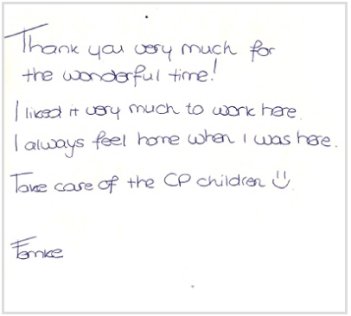 Thank you very much for
the wonderful time!
I liked it very much to work here.
I always feel home when I was here.
Take care of the CP children
Femke